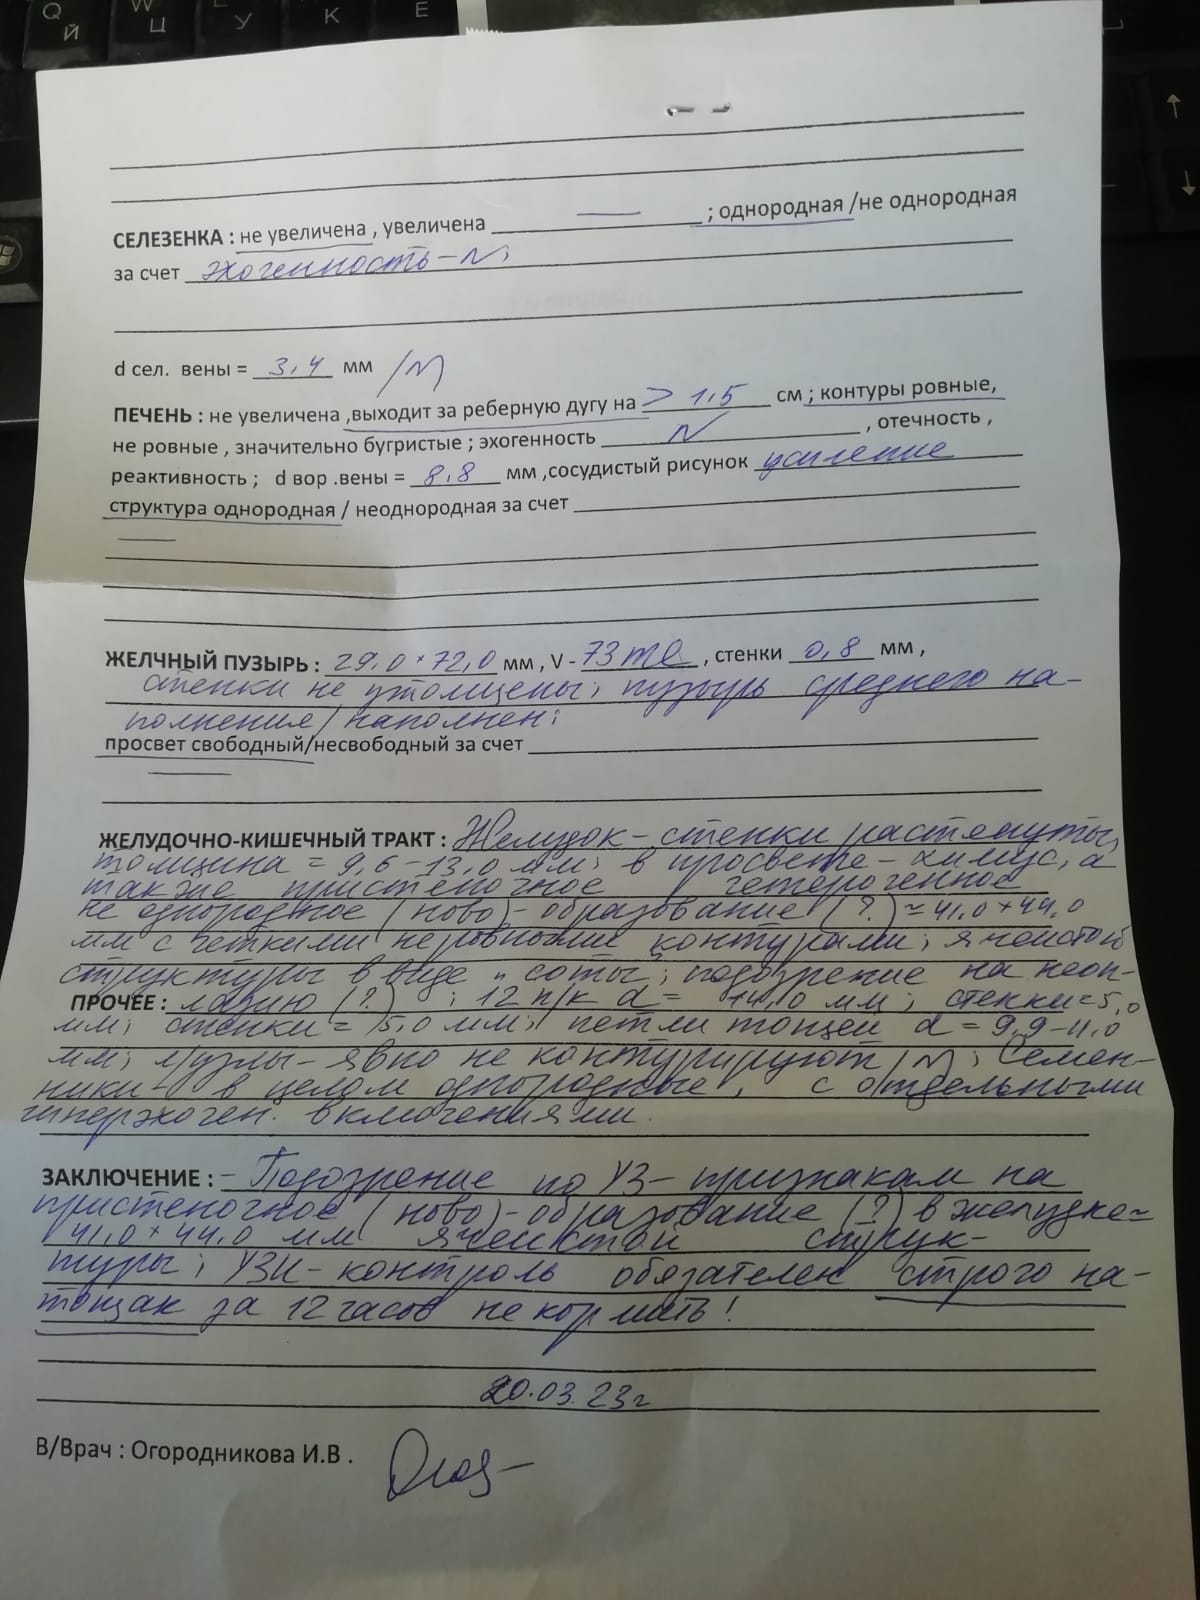 Q W E
Й Ц У К Е
СЕЛЕЗЕНКА : не увеличена , увеличена — ; однородная /не однородная
за счет эхогенность – N;
d сел. вены = 3,4 мм /N
ПЕЧЕНЬ : не увеличена ,выходит за реберную дугу на > 1,5 см ; контуры ровные,
не ровные , значительно бугристые ; эхогенность N , отечность ,
реактивность ; d вор .вены = 8,8 мм ,сосудистый рисунок усиление
структура однородная / неоднородная за счет
ЖЕЛЧНЫЙ ПУЗЫРЬ : 29,0 × 72,0 мм , V - 73 ml , стенки 0,8 мм ,
стенки не утолщены; пузырь среднего на-
полнения/наполнен;
просвет свободный/несвободный за счет
ЖЕЛУДОЧНО-КИШЕЧНЫЙ ТРАКТ : Желудок – стенки растянуты,
толщина = 9,6 – 13,0 мм; в просвете – химус, а
также пристеночное гетерогенное
не однородное (ново)-образование (?) ≈ 41,0 × 44,0
мм с четкими неровными контурами; ячеистой
структуры в виде "соты; подозрение на неоп-
ПРОЧЕЕ : лазию (?) ; 12 п/к d = 14,0 мм; стенки = 5,0
мм; стенки = 5,0 мм; петли тощей d = 9,9 – 11,0
мм; л/узлы – явно не контурируют /N; Семен-
ники – в целом однородные, с отдельными
гиперэхоген. включениями.
ЗАКЛЮЧЕНИЕ : – Подозрение по УЗ – признакам на
пристеночное (ново)-образование (?) в желудке ≈
41,0 × 44,0 мм ячеистой струк-
туры; УЗИ – контроль обязателен строго на-
тощак за 12 часов не кормить!
20.03.23г
В/Врач : Огородникова И.В .